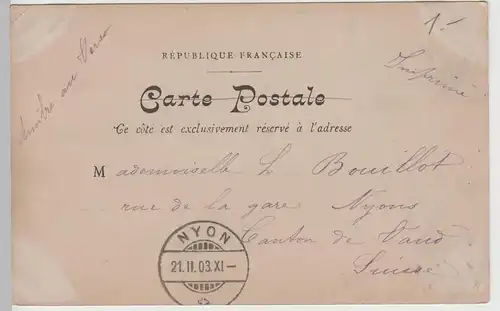 1.-
Timbre au Verso
Imprimé
RÉPUBLIQUE FRANÇAISE
Carte Postale
Ce côté est exclusivement réservé à l'adresse
Mademoiselle L Bouillot
rue de la gare Nyons
Canton de Vaud
Suisse
NYON
21.II.03.XI-